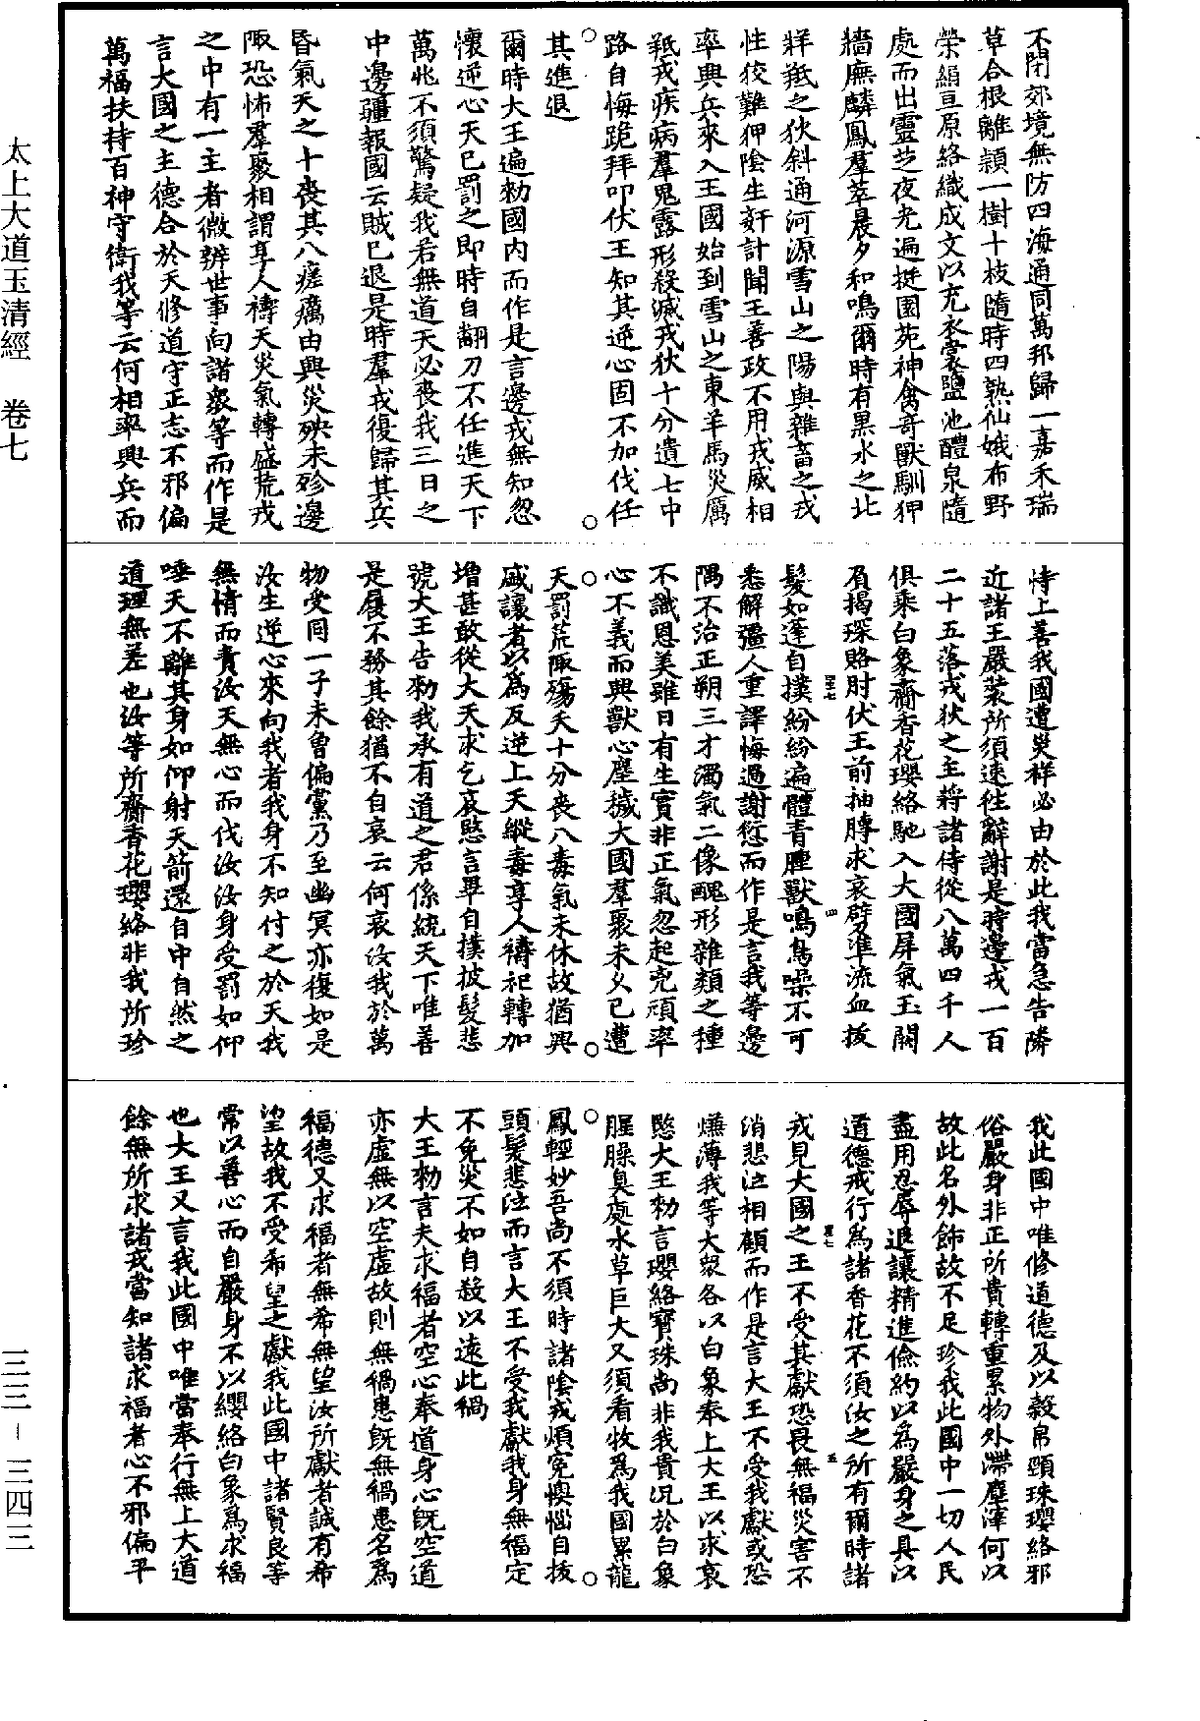 不閉郊境無防四海通同萬邦歸一嘉禾瑞
草合根離穎一樹十枝隨時四熟仙娥布野
榮絹亘原絡織成文以充衣裳鹽池醴泉隨
處而出靈芝夜光遍挺園苑神禽奇獸馴狎
牆廡麟鳳羣萃晨夕和鳴爾時有黑水之北
牂羝之狄斜通河源雪山之陽與雜畜之戎
性狡難狎陰生姧計聞王善政不用戎威相
率興兵來入王國始到雪山之東羊馬災厲
羝戎疾病羣鬼露形殺滅戎狄十分遺七中
路自悔跪拜叩伏王知其逆心固不加伐任
其進退
爾時大王遍勑國內而作是言邊戎無知忽
懷逆心天已罰之即時自翻刀不任進天下
萬兆不須驚疑我若無道天必喪我三日之
中邊疆報國云賊已退是時羣戎復歸其兵
昏氣天之十喪其八瘥癘由興災殃未殄邊
陬恐怖羣聚相謂享人禱天災氣轉盛荒戎
之中有一主者微辨世事向諸眾等而作是
言大國之主德合於天修道守正志不邪偏
萬福扶持百神守衛我等云何相率興兵而
恃上善我國遭災祥必由於此我當急告隣
近諸王嚴裝所須速往辭謝是時邊戎一百
二十五落戎狄之主將諸侍從八萬四千人
俱乘白象齎香花瓔絡馳入大國屏氣玉闕
肩揭琛賂肘伏王前抽膞求哀劈準流血拔
髮如蓬自撲紛紛遍體青腫獸鳴鳥噪不可
悉解彊人重譯悔過謝愆而作是言我等邊
隅不治正朔三才濁氣二像醜形雜類之種
不識恩美雖曰有生實非正氣忽起兇頑率
心不義而興獸心塵穢大國羣聚未乆已遭
天罰荒陬殤夭十分喪八毒氣未休故猶興
戚讓者以為反逆上天縱毒享人禱祀轉加
增甚敢從大天求乞哀愍言畢自撲披髮悲
號大王告勑我承有道之君係統天下唯善
是履不務其餘猶不自哀云何哀汝我於萬
物受同一子未曾偏黨乃至幽冥亦復如是
汝生逆心來向我者我身不知付之於天我
無情而責汝天無心而伐汝汝身受罰如仰
唾天不離其身如仰射天箭還自中自然之
道理無差也汝等所齎香花瓔絡非我所珍
我此國中唯修道德及以穀帛頸珠瓔絡邪
俗嚴身非正所貴轉重累物外滯塵滓何以
故此名外飾故不足珍我此國中一切人民
盡用忍辱退讓精進儉約以為嚴身之具以
道德戒行為諸香花不須汝之所有爾時諸
戎見大國之王不受其獻恐畏無福災害不
消悲泣相顧而作是言大王不受我獻或恐
嫌薄我等大眾各以白象奉上大王以求哀
愍大王勑言瓔絡寶珠尚非我貴況於白象
腥臊臭處水草巨大又須看牧為我國累龍
鳳輕妙吾尚不須時諸陰戎煩寃懊惱自拔
頭髮悲泣而言大王不受我獻我身無福定
不免災不如自殺以遠此禍
大王勑言夫求福者空心奉道身心既空道
亦虛無以空虛故則無禍患既無禍患名為
福德又求福者無希無望汝所獻者誠有希
望故我不受希望之獻我此國中諸賢良等
常以善心而自嚴身不以纓絡白象為求福
也大王又言我此國中唯當奉行無上大道
餘無所求諸戎當知諸求福者心不邪偏平
太上大道玉清經　卷七
三三－三四三